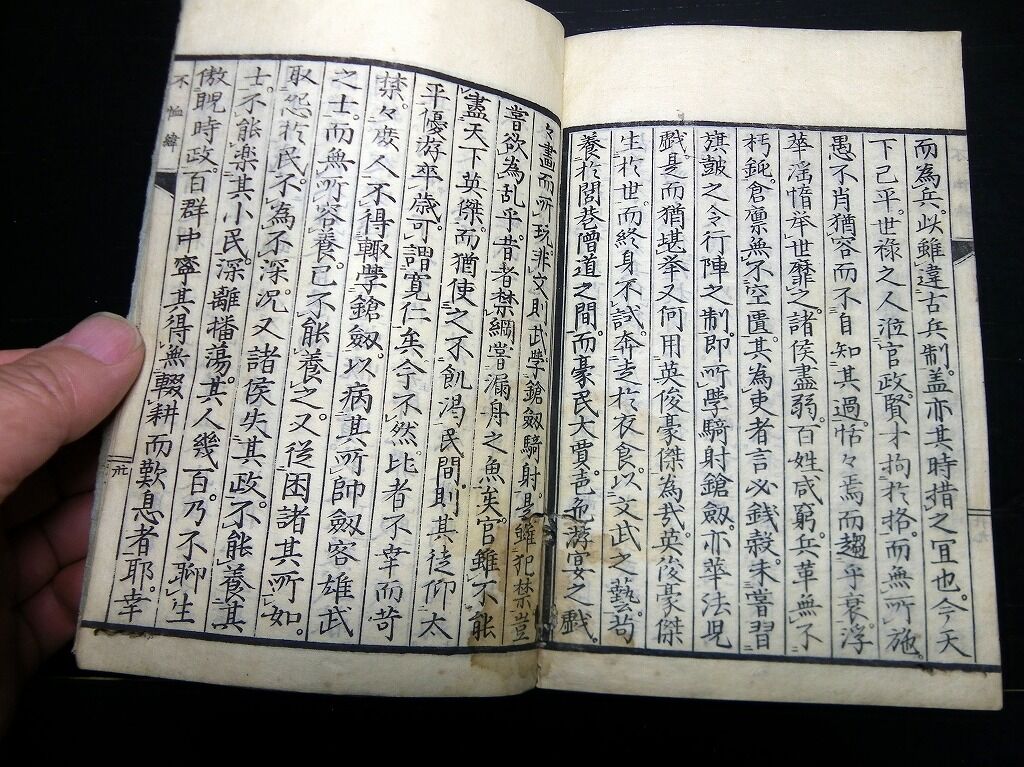 而為兵。此雖違古兵制。盖亦其時措之宜也。今天
下已平。世祿之人涖官政。賢才拘於挌。而無所施。
愚不肖猶容而不自知其過。恬々焉而趨乎衰。浮
華滛惰。举世靡之。諸侯盡弱。百姓咸窮。兵革無不
朽鈍。倉廪無不空匱。其為吏者言必錢穀。未嘗習
旗鼓之令行陣之制。即所學騎射鎗劔。亦華法児
戯。是而猶堪举。又何用英俊豪傑為哉。英俊豪傑
生於世。而終身不試。奔走於夜食。以文武之藝。苟
養於閭巷僧道之間。而豪民大賈。邑色游宴之戯。
々畫而所玩。非文則武。學鎗劔騎射。是雖犯禁。豈
嘗欲為乱乎。昔者禁綱嘗漏舟之魚矣。官雖不能
盡天下英傑。而猶使之不飢渴民間。則其徒仰太
平。優游卒歳。可謂寛仁矣。今不然。比者不幸而苛
禁々庶人不得輙學鎗劔。以病其所帥劔客雄武
之士。而無所容養。己不能養之。又從困諸其所如。
取怨於民。不為不深。况又諸侯失其政。不能養其
士。不能楽其小民。深離播蕩。其人幾百。乃不聊生
傲睨時政。百群中寧其得無輟耕而歎息者耶。幸
不恤緯